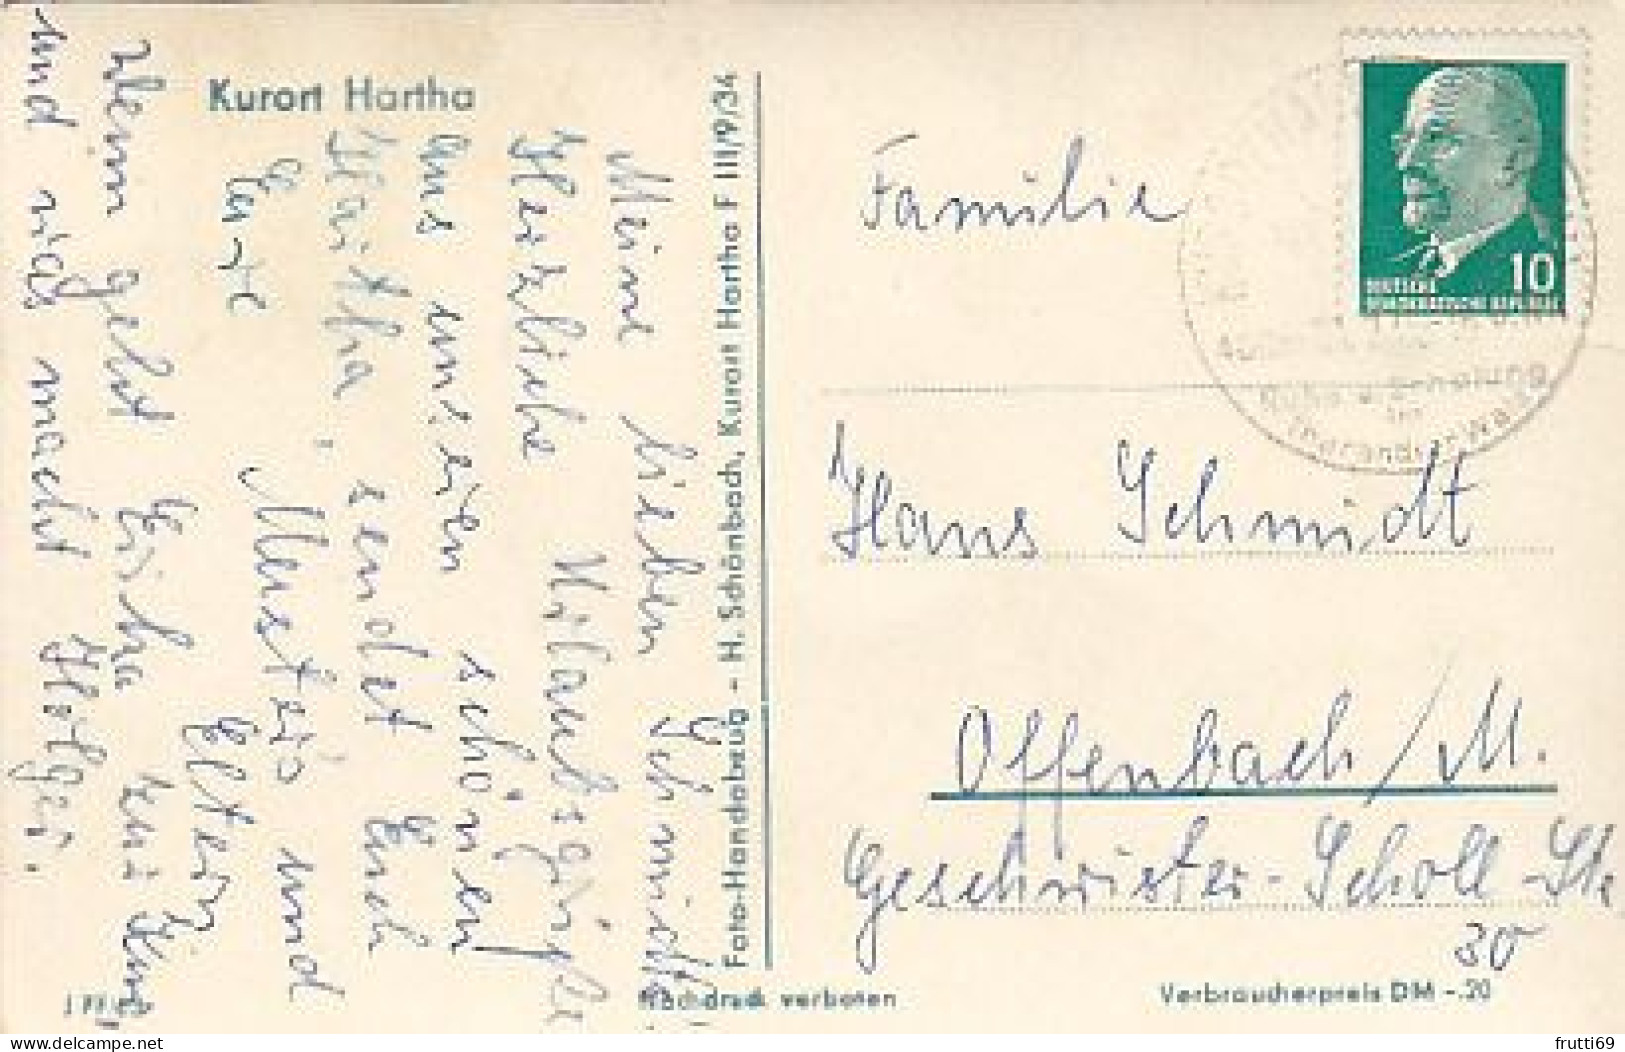 Kurort Hartha
Meine lieben Schmidts
Herzliche Urlaubsgrüße
aus unseren schönen
Hartha, sendet Euch
Eure Mutti und
Eltern
Wenn geht Erika zur Kur
und was macht Helga?
Foto-Handabzug - H. Schönbach, Kurort Hartha F III/9/34
Nachdruck verboten
10
DEUTSCHE
DEMOKRATISCHE REPUBLIK
Ruhe u. Erholung
im
Tharandter Wald
Familie
Hans Schmidt
Offenbach/M.
Geschwister-Scholl-Str
30
Verbraucherpreis DM -.20
delcampe.net
frutti69